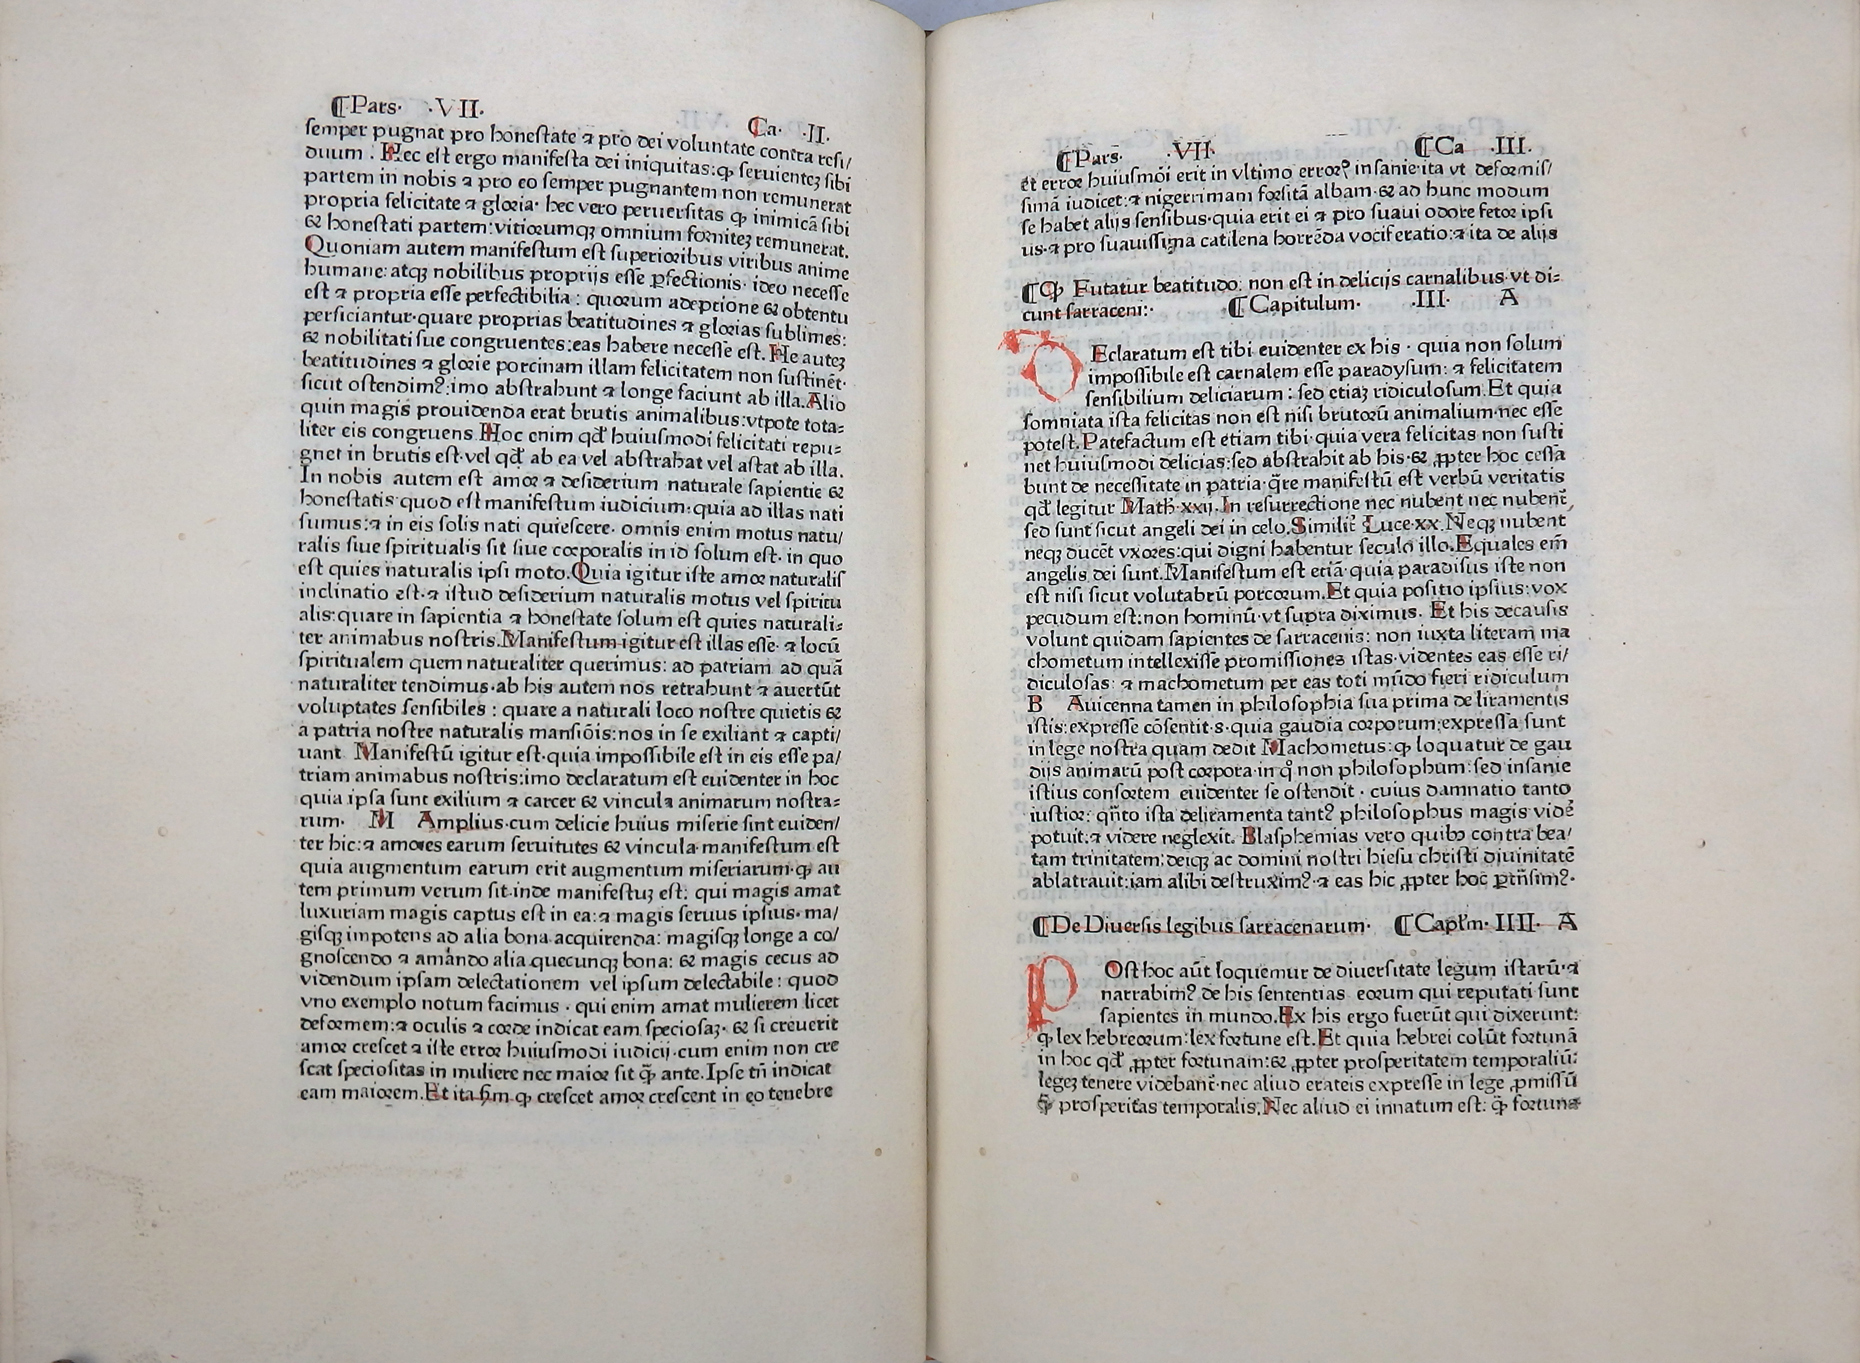 ¶Pars· ·VII·
Ca· ·II·
semper pugnat pro honestate ⁊ pro dei voluntate contra resi/
duum . Hec est ergo manifesta dei iniquitas:ꝙ seruienteꝫ sibi
partem in nobis ⁊ pro eo semper pugnantem non remunerat
propria felicitate ⁊ gloria· hec vero peruersitas ꝙ inimicā sibi
& honestati partem:vitiorumqꝫ omnium forniteꝫ remunerat.
Quoniam autem manifestum est superioribus viribus anime
humane:atqꝫ nobilibus proprijs esse ꝑfectionis· ideo necesse
est ⁊ propria esse perfectibilia : quorum adeptione & obtentu
perficiantur·quare proprias beatitudines ⁊ glorias sublimes:
& nobilitati sue congruentes:eas habere necesse est. He auteꝫ
beatitudines ⁊ glorie porcinam illam felicitatem non sustinēt·
sicut ostendimꝰ:imo abstrahunt ⁊ longe faciunt ab illa.Alio
quin magis prouidenda erat brutis animalibus:vtpote tota=
liter eis congruens Hoc enim qđ huiusmodi felicitati repu=
gnet in brutis est·vel qđ ab ea vel abstrahat vel astat ab illa.
In nobis autem est amor ⁊ desiderium naturale sapientie &
honestatis·quod est manifestum iudicium:quia ad illas nati
sumus:⁊ in eis solis nati quiescere· omnis enim motus natu/
ralis siue spiritualis sit siue corporalis in id solum est· in quo
est quies naturalis ipsi moto.Quia igitur iste amor naturalis
inclinatio est·⁊ istud desiderium naturalis motus vel spiritu
alis:quare in sapientia ⁊ honestate solum est quies naturali=
ter animabus nostris.Manifestum igitur est illas esse· ⁊ locū
spiritualem quem naturaliter querimus: ad patriam ad quā
naturaliter tendimus·ab his autem nos retrahunt ⁊ auertūt
voluptates sensibiles : quare a naturali loco nostre quietis &
a patria nostre naturalis mansiōis:nos in se exiliant ⁊ capti/
uant Manifestū igitur est·quia impossibile est in eis esse pa/
triam animabus nostris:imo declaratum est euidenter in hoc
quia ipsa sunt exilium ⁊ carcer & vincula animarum nostra=
rum· M Amplius·cum delicie huius miserie sint euiden/
ter hic:⁊ amores earum seruitutes & vincula·manifestum est
quia augmentum earum erit augmentum miseriarum·ꝙ au
tem primum verum sit·inde manifestuꝫ est: qui magis amat
luxuriam magis captus est in ea:⁊ magis seruus ipsius· ma/
gisqꝫ impotens ad alia bona acquirenda: magisqꝫ longe a co/
gnoscendo ⁊ amando alia quecunqꝫ bona: & magis cecus ad
videndum ipsam delectationem vel ipsum delectabile : quod
vno exemplo notum facimus · qui enim amat mulierem licet
deformem:⁊ oculis ⁊ corde indicat eam speciosaꝫ· & si creuerit
amor crescet ⁊ iste error huiusmodi iudicij·cum enim non cre
scat speciositas in muliere nec maior sit ꝙ̄ ante.Ipse tn̄ indicat
eam maiorem.Et ita fm ꝙ crescet amor crescent in eo tenebre
¶Pars· ·VII·
¶Ca ·III·
et error huiusmōi erit in vltimo erroꝝ insanie·ita vt deformis/
simā iudicet:⁊ nigerrimam forsitā albam·& ad hunc modum
se habet alijs sensibus·quia erit ei ⁊ pro suaui odore fetor ipsi
us·⁊ pro suauissima catilena horrēda vociferatio:⁊ ita de alijs
¶Ꝙ Futatur beatitudo: non est in delicijs carnalibus·vt di=
cunt sarraceni:· ¶Capitulum· ·III· A
DEclaratum est tibi euidenter ex his · quia non solum
impossibile est carnalem esse paradysum: ⁊ felicitatem
sensibilium deliciarum : sed etiaꝫ ridiculosum.Et quia
somniata ista felicitas non est nisi brutorū animalium·nec esse
potest.Patefactum est etiam tibi·quia vera felicitas non susti
net huiusmodi delicias:sed abstrahit ab his·& ꝓpter hoc cessa
bunt de necessitate in patria·q̄re manifestū est verbū veritatis
qđ legitur Math·xxij.In resurrectione nec nubent nec nubent̄,
sed sunt sicut angeli dei in celo.Similit̄ Luce·xx.Neqꝫ nubent
neqꝫ ducēt vxores:qui digni habentur seculo illo.Equales em̄
angelis dei sunt.Manifestum est etiā·quia paradisus iste non
est nisi sicut volutabrū porcorum.Et quia positio ipsius:vox
pecudum est:non hominū·vt supra diximus. Et his decausis
volunt quidam sapientes de sarracenis: non iuxta literam ma
chometum intellexisse promissiones istas·videntes eas esse ri/
diculosas: ⁊ machometum per eas toti mūdo fieri ridiculum
B Auicenna tamen in philosophia sua prima de liramentis
istis:expresse cōsentit·s·quia gaudia corporum:expressa sunt
in lege nostra quam dedit Machometus:ꝙ loquatur de gau
dijs animarū post corpora·in qͦ non philosophum:sed insanie
istius consortem euidenter se ostendit · cuius damnatio tanto
iustior: qn̄to ista deliramenta tantꝰ philosophus magis vidē
potuit·⁊ videre neglexit. Blasphemias vero quibꝫ contra bea/
tam trinitatem:deiqꝫ ac domini nostri hiesu christi diuinitatē
ablatrauit:iam alibi destruximꝰ·⁊ eas hic ꝓpter hoc ꝑtn̄simꝰ·
¶De Diuersis legibus sarracenarum· ¶Capłm· IIII· A
POst hoc aūt loquemur de diuersitate legum istarū·⁊
narrabimꝰ de his sententias eorum qui reputati sunt
sapientes in mundo.Ex his ergo fuerūt qui dixerunt:
ꝙ lex hebreorum:lex fortune est.Et quia hebrei colūt fortunā
in hoc qđ ꝓpter fortunam:& ꝓpter prosperitatem temporaliū:
legeꝫ tenere videbant̄·nec aliud erateis expresse in lege ꝓmissū
ꝙ̄ prosperitas temporalis.Nec aliud ei innatum est: ꝙ̄ fortuna